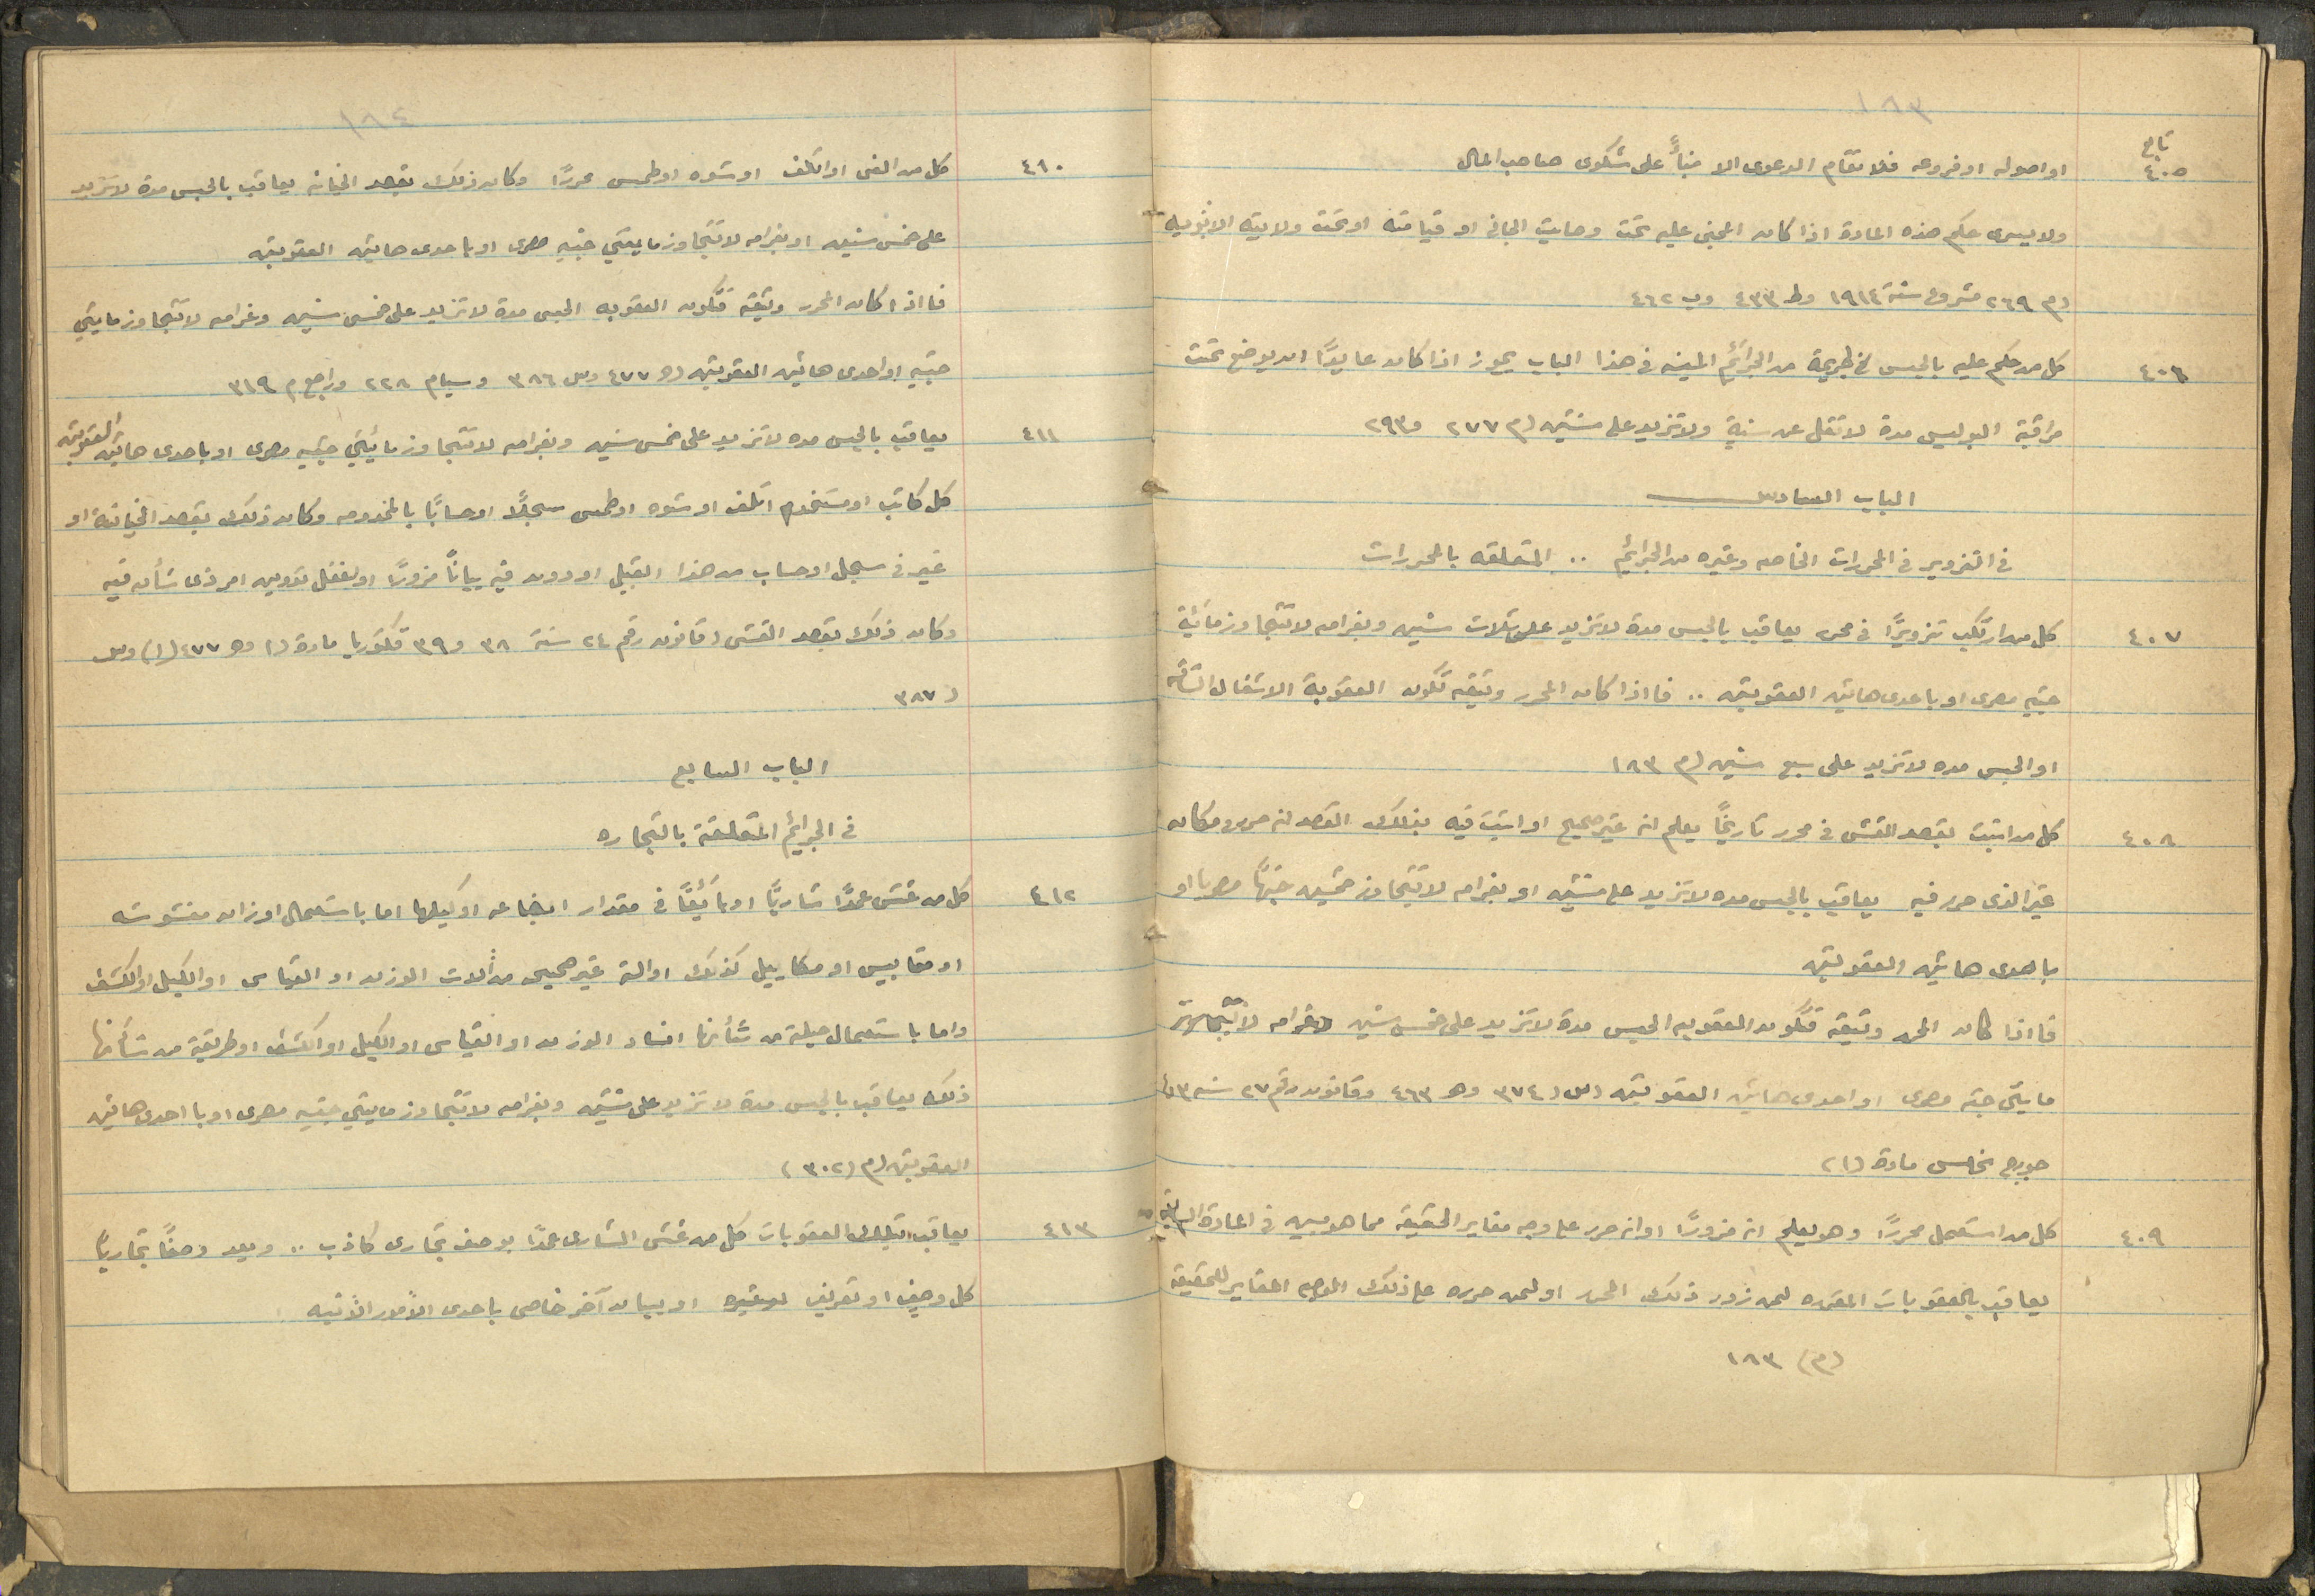 ١٨٣
تابع
٤٠٥
او اصوله او فروعه فلا تقام الدعوى الا بناءً على شكوى صاحب المال
ولا يسرى حكم هذه المادة اذا كان المجنى عليه تحت وصاية الجانى او قيامته او تحت ولايته الابويه
(م ٢٦٩ مشروع سنة ١٩١٤ وط ٤٣٣ وب ٤٦٢
٤٠٦
كل من حكم عليه بالحبس فى جريمة من الجرائم المبينه فى هذا الباب يجوز اذا كان عايدًا ان يوضع تحت
مراقبة البوليس مدة لا تقل عن سنة ولا تزيد على سنتين (م ٢٧٧ و ٢٩٣
الباب السادس
فى التزوير فى المحررات الخاصه وغيره من الجرائم .. المتعلقه بالمحررات
٤٠٧
كل من ارتكب تزويرًا فى محرر يعاقب بالحبس مدة لا تزيد على ثلاث سنين وبغرامه لا تتجاوز مائة
جنيه مصرى او باحدى هاتين العقوبتين .. فاذا كان المحرر وثيقه تكون العقوبة الاشغال الشاقه
او الحبس مده لا تزيد على سبع سنين (م ١٨٣
٤٠٨
كل من اثبت بقصد الغش فى محرر تاريخًا يعلم انه غير صحيح او اثبت فيه بذلك القصد انه حرر فى مكان
غير الذى حرر فيه يعاقب بالحبس مده لا تزيد على سنتين او بغرامه لا تتجاوز خمسين جنيهًا مصريا او
باحدى هاتين العقوبتين
فاذا كان المحرر وثيقه فتكون العقوبه الحبس مدة لا تزيد على خمس سنين وغرامه لا تتجاوز
مايتى جنيه مصرى او احدى هاتين العقوبتين (س ( ٣٧٤ وهـ ٤٦٣ وقانون رقم ٢٧ سنه ٣ و ٤
جورج خامس مادة (٢١
٤٠٩
كل من استعمل محررًا وهو يعلم انه مزورًا او انه حرر على وجه مغاير الحقيقة مما هو مبين فى المادة السابقه
يعاقب بالعقوبات المقرره لمن زور ذلك المحرر او لمن حرره على ذلك الوجه المغاير للحقيقة
(م) ١٨٣
١٨٤
٤١٠
كل من الغى او اتلف او شوه او طمس محررًا وكان ذلك بقصد الخيانه يعاقب بالحبس مدة لا تزيد
على خمس سنين او بغرامه لا تتجاوز مايتي جنيه مصرى او باحدى هاتين العقوبتين
فاذا كان المحرر وثيقه فتكون العقوبه الحبس مدة لا تزيد على خمس سنين وغرامه لا تتجاوز مايتي
جنيه او احدى هاتين العقوبتين (هـ ٤٧٧ وس ٣٨٦ وسيام ٢٢٨ وراجع م ٣١٩
٤١١
يعاقب بالحبس مده لا تزيد على خمس سنين وبغرامه لا تتجاوز مائتي جنيه مصرى او باحدى هاتين العقوبتين
كل كاتب او مستخدم اتلف او شوه او طمس سجلًا او حسابًا بالمخدومه وكان ذلك بقصد الخيانة او
غير فى سجل او حساب من هذا القبيل او دون فيه بيانًا مزورًا او اغفل تدوين امر ذى شأن فيه
وكان ذلك بقصد الغش (قانون رقم ٢٤ سنة ٣٨ و ٣٩ فكتوريا مادة (١ وهـ ٤٧٧ (١) وس
( ٣٨٧
الباب السابع
فى الجرائم المتعلقة بالتجاره
٤١٢
كل من غش عمدًا شاريًا او بائعًا فى مقدار البضاعه او كيلها اما باستعمال اوزان مغشوشه
او مقاييس او مكاييل كذلك او الة غير صحيحه من آلات الوزن او القياس او الكيل او الكشف
واما باستعمال حيلة من شأنها افساد الوزن او القياس او الكيل او الكشف او طريقة من شأنها
ذلك يعاقب بالحبس مدة لا تزيد على سنتين وبغرامه لا تتجاوز مايتي جنيه مصرى او باحدى هاتين
العقوبتين (م (٣٠٢)
٤١٣
يعاقب بتلك العقوبات كل من غش الشارى عمدًا بوصف تجارى كاذب .. ويعد وصفًا تجاريًا
كل وصف او تعريف او غيره او بيان آخر خاص باحدى الأمور الآتيه